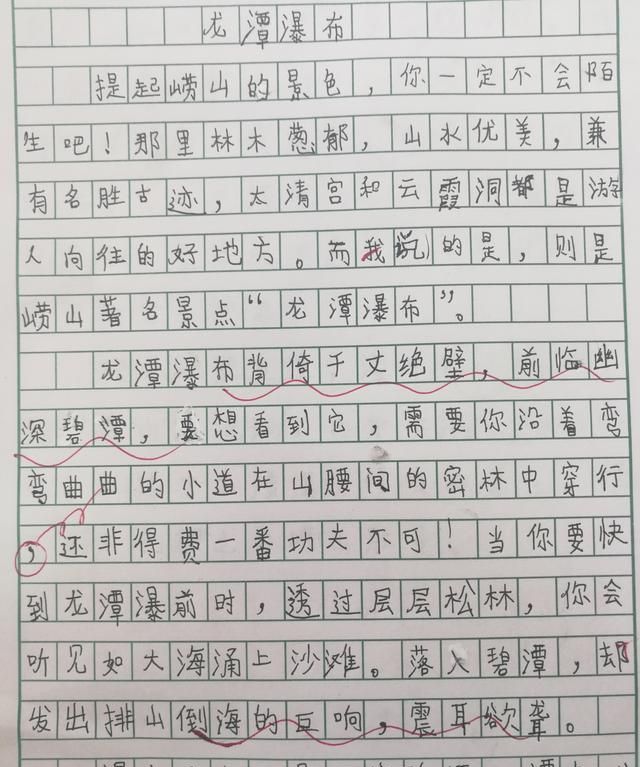 龙潭瀑布
提起崂山的景色，你一定不会陌
生吧！那里林木葱郁，山水优美，兼
有名胜古迹，太清宫和云霞洞都是游
人向往的好地方。而我说的是，则是
崂山著名景点“龙潭瀑布”。
龙潭瀑布背倚千丈绝壁，前临幽
深碧潭，要想看到它，需要你沿着弯
弯曲曲的小道在山腰间的密林中穿行
，还非得费一番功夫不可！当你要快
到龙潭瀑前时，透过层层松林，你会
听见如大海涌上沙滩。落入碧潭，却
发出排山倒海的巨响，震耳欲聋。